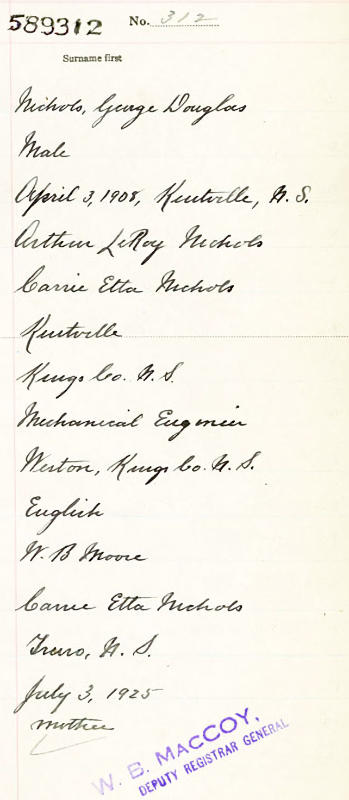 589312 No. 312
Surname first
Nichols, George Douglas
Male
April 3, 1908, Kentville, N. S.
Arthur LeRoy Nichols
Carrie Etta Nichols
Kentville
Kings Co. N. S.
Mechanical Engineer
Weston, Kings Co. N. S.
English
W. B Moore
Carrie Etta Nichols
Truro, N. S.
July 3, 1925
mother
W. B. MACCOY,
DEPUTY REGISTRAR GENERAL